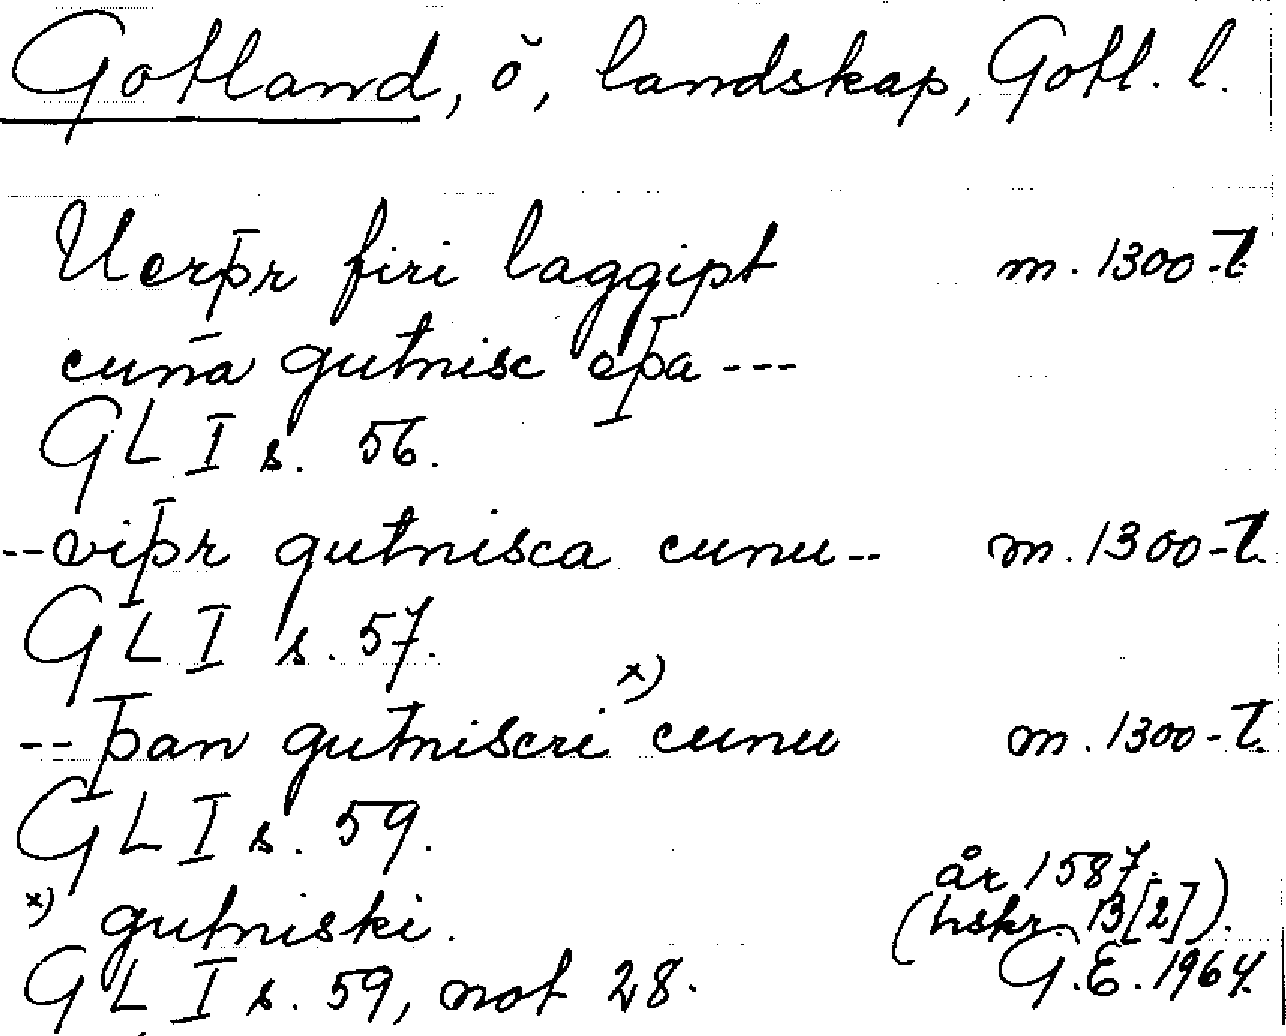 Gotland, ö, landskap, Gotl. l.
Uerþr firi laggipt m. 1300-t.
cun̄a gutnisc eþa ---
GL I s. 56.
--viþr gutnisca cunu-- m. 1300-t.
GL I s. 57.
--þan gutniscri x) cunu m. 1300-t.
GL I s. 59.
x) gutniski. år 1587. (hskr. B[2]).
GL I s. 59, not 28. G.E. 1964.